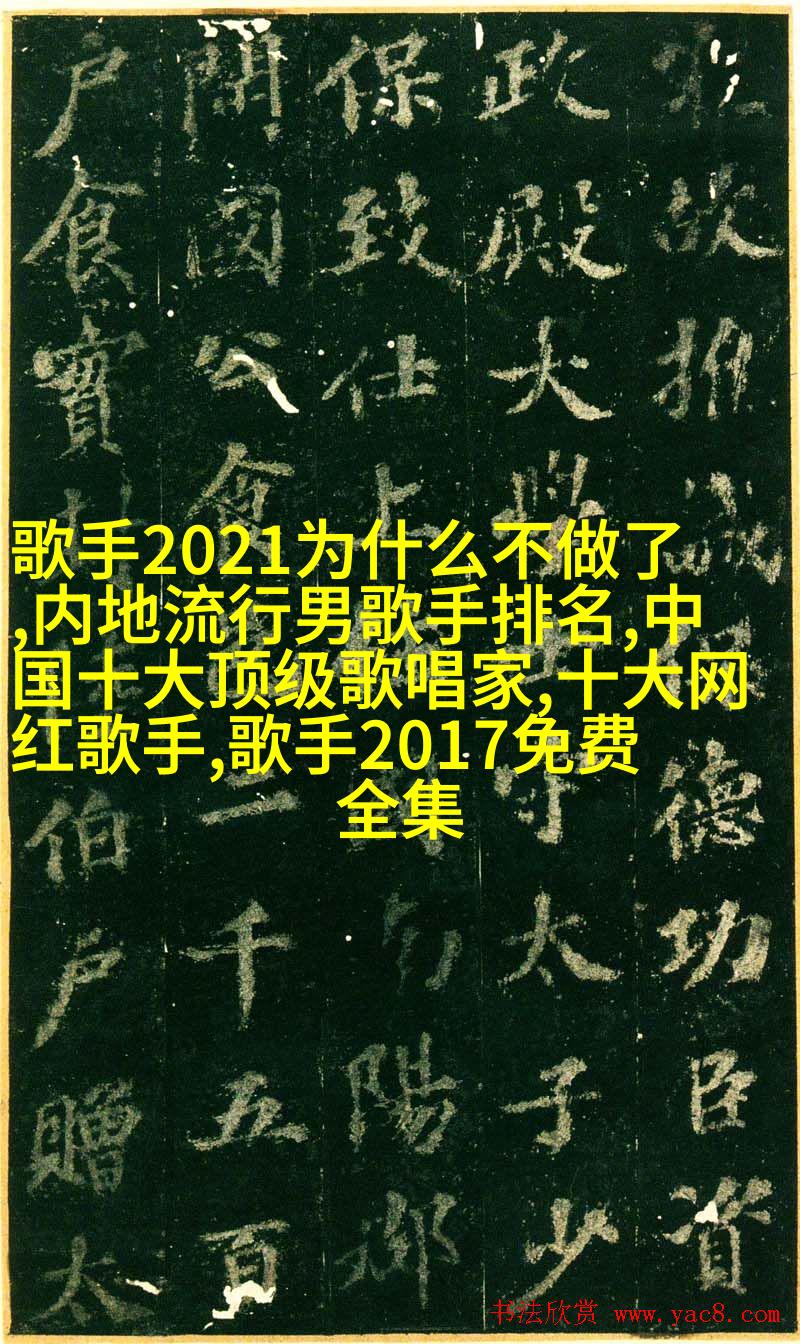 歌手2021为什么不做了
,内地流行男歌手排名,中
国十大顶级歌唱家,十大网
红歌手,歌手2017免费
全集
故推誠保德功臣資
政殿大學守太子少
保致仕上陽郡
開國公食千五百
户食實封伯户贈太
书法欣赏 www.yac8.com